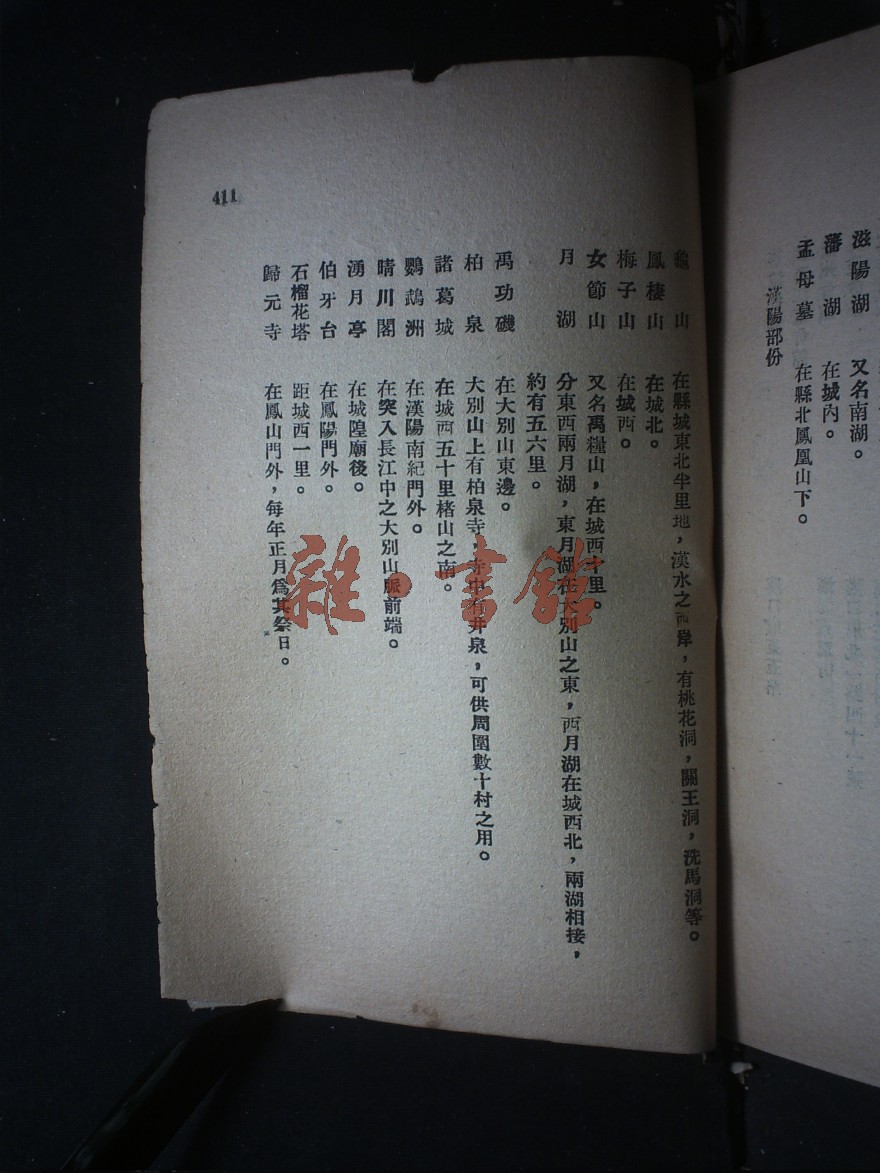 滋陽湖　又名南湖。
藩湖　在城內。
孟母墓　在縣北鳳凰山下。
漢陽部份
龜山　在縣城東北半里地，漢水之西岸，有桃花洞，關王洞，洗馬洞等。
鳳棲山　在城北。
梅子山　在城西。
女節山　又名禹糧山，在城西十里。
月湖　分東西兩月湖，東月湖在大別山之東，西月湖在城西北，兩湖相接，
約有五六里。
禹功磯　在大別山東邊。
柏泉　大別山上有柏泉寺，寺中有井泉，可供周圍數十村之用。
諸葛城　在城西五十里楮山之南。
鸚鵡洲　在漢陽南紀門外。
晴川閣　在突入長江中之大別山脈前端。
湧月亭　在城隍廟後。
伯牙台　在鳳陽門外。
石榴花塔　距城西一里。
歸元寺　在鳳山門外，每年正月爲其祭日。
411
雜·書館